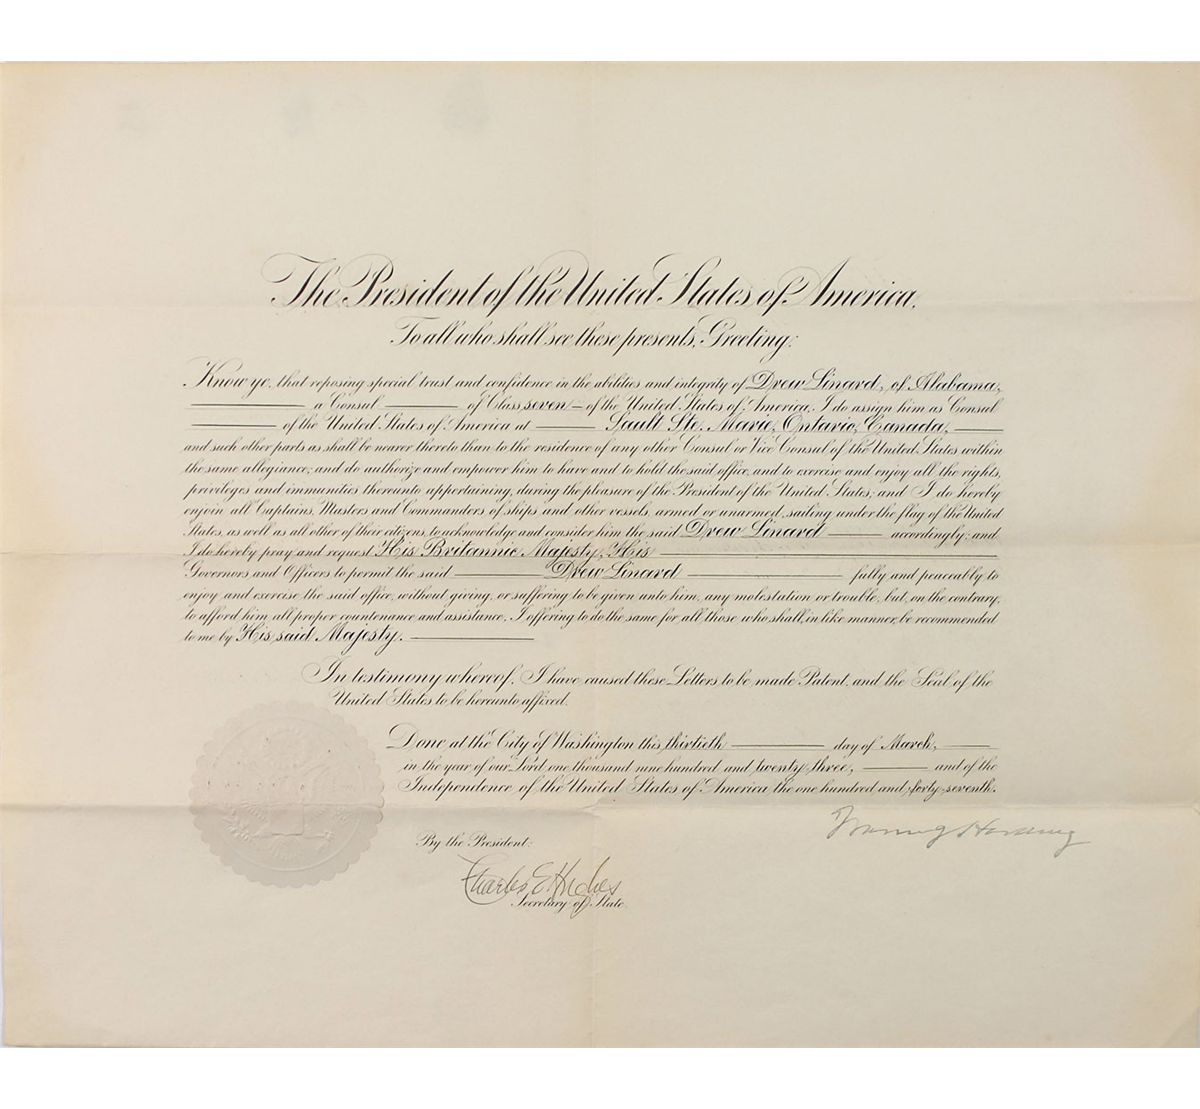 The President of the United States of America.
To all who shall see these presents, Greeting:
Know ye, that reposing special trust and confidence in the abilities and integrity of Drew Linard, of Alabama,
a Consul of Class seven of the United States of America, I do assign him as Consul
of the United States of America at Sault Ste. Marie, Ontario, Canada,
and such other parts as shall be nearer thereto than to the residence of any other Consul or Vice Consul of the United States within
the same allegiance; and do authorize and empower him to have and to hold the said office, and to exercise and enjoy all the rights,
privileges and immunities thereunto appertaining, during the pleasure of the President of the United States; and I do hereby
enjoin all Captains, Masters and Commanders of ships and other vessels, armed or unarmed, sailing under the flag of the United
States, as well as all other of their citizens, to acknowledge and consider him the said Drew Linard accordingly; and
I do hereby pray and request His Britannic Majesty, His
Governors and Officers to permit the said Drew Linard fully and peaceably to
enjoy and exercise the said office, without giving, or suffering to be given unto him, any molestation or trouble, but, on the contrary,
to afford him all proper countenance and assistance; I offering to do the same for all those who shall, in like manner, be recommended
to me by His said Majesty.
In testimony whereof, I have caused these Letters to be made Patent, and the Seal of the
United States to be hereunto affixed.
Done at the City of Washington this thirtieth day of March,
in the year of our Lord one thousand nine hundred and twenty three, and of the
Independence of the United States of America the one hundred and forty-seventh.
Warren G Harding
By the President:
Charles E Hughes
Secretary of State.